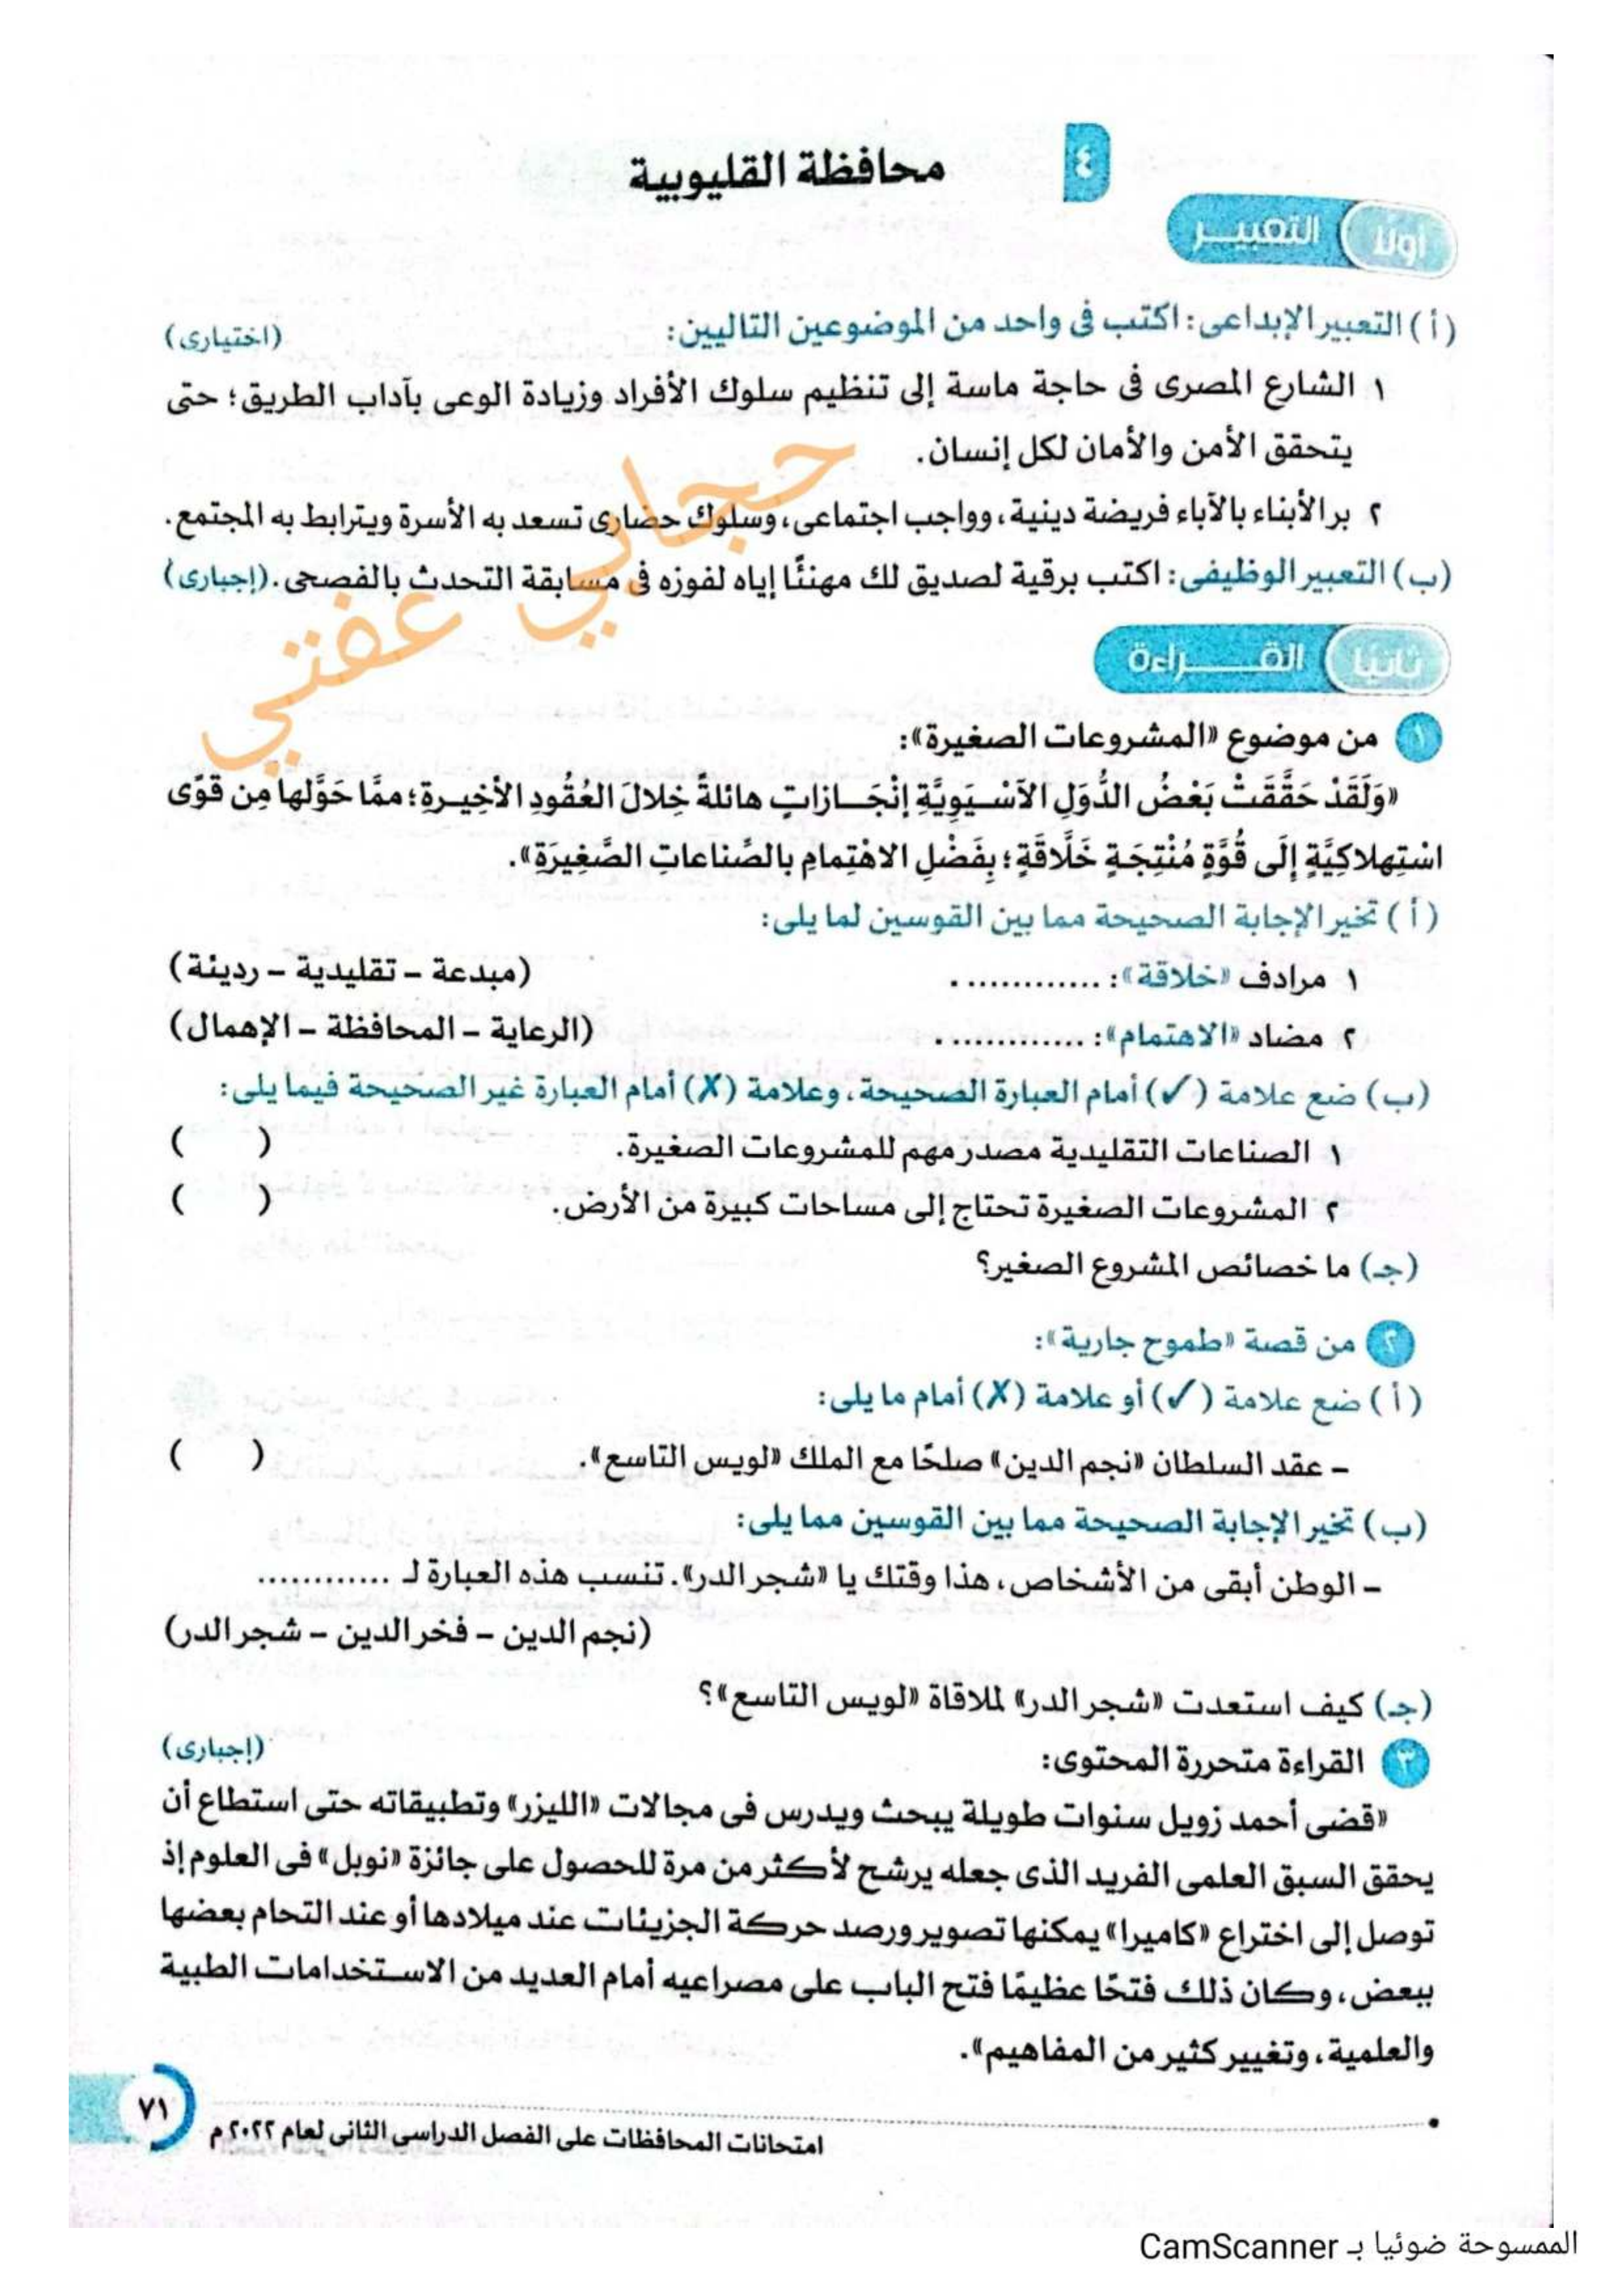 ٤
محافظة القليوبية
أولًا التعبيـــر
(أ) التعبير الإبداعى: اكتب فى واحد من الموضوعين التاليين: (اختيارى)
١ الشارع المصرى فى حاجة ماسة إلى تنظيم سلوك الأفراد وزيادة الوعى بآداب الطريق؛ حتى
يتحقق الأمن والأمان لكل إنسان.
٢ بر الأبناء بالآباء فريضة دينية، وواجب اجتماعى، وسلوك حضارى تسعد به الأسرة ويترابط به المجتمع.
(ب) التعبير الوظيفى: اكتب برقية لصديق لك مهنئًا إياه لفوزه فى مسابقة التحدث بالفصحى. (إجبارى)
حجابي عفتي
ثانيًا القـــــراءة
١ من موضوع «المشروعات الصغيرة»:
«وَلَقَدْ حَقَّقَتْ بَعْضُ الدُّوَلِ الآسْـيَوِيَّةِ إنْجَــازاتٍ هائلةً خِلالَ العُقُودِ الأخِيـرةِ؛ ممَّا حَوَّلَها مِن قوًى
اسْتِهلاكِيَّةٍ إلَى قُوَّةٍ مُنْتِجَةٍ خَلَّاقَةٍ؛ بِفَضْلِ الاهْتِمامِ بالصِّناعاتِ الصَّغِيرَةِ».
(أ) تخير الإجابة الصحيحة مما بين القوسين لما يلى:
١ مرادف «خلاقة»: ............. (مبدعة – تقليدية – رديئة)
٢ مضاد «الاهتمام»: ............. (الرعاية – المحافظة – الإهمال)
(ب) ضع علامة (✓) أمام العبارة الصحيحة، وعلامة (✗) أمام العبارة غير الصحيحة فيما يلى:
١ الصناعات التقليدية مصدر مهم للمشروعات الصغيرة. ( )
٢ المشروعات الصغيرة تحتاج إلى مساحات كبيرة من الأرض. ( )
(جـ) ما خصائص المشروع الصغير؟
٢ من قصة «طموح جارية»:
(أ) ضع علامة (✓) أو علامة (✗) أمام ما يلى:
– عقد السلطان «نجم الدين» صلحًا مع الملك «لويس التاسع». ( )
(ب) تخير الإجابة الصحيحة مما بين القوسين مما يلى:
– الوطن أبقى من الأشخاص، هذا وقتك يا «شجر الدر». تنسب هذه العبارة لـ ............
(نجم الدين – فخر الدين – شجر الدر)
(جـ) كيف استعدت «شجر الدر» لملاقاة «لويس التاسع»؟
٣ القراءة متحررة المحتوى: (إجبارى)
«قضى أحمد زويل سنوات طويلة يبحث ويدرس فى مجالات «الليزر» وتطبيقاته حتى استطاع أن
يحقق السبق العلمى الفريد الذى جعله يرشح لأكثر من مرة للحصول على جائزة «نوبل» فى العلوم إذ
توصل إلى اختراع «كاميرا» يمكنها تصوير ورصد حركة الجزيئات عند ميلادها أو عند التحام بعضها
ببعض، وكان ذلك فتحًا عظيمًا فتح الباب على مصراعيه أمام العديد من الاستخدامات الطبية
والعلمية، وتغيير كثير من المفاهيم».
امتحانات المحافظات على الفصل الدراسى الثانى لعام ٢٠٢٢م
٧١
الممسوحة ضوئيا بـ CamScanner